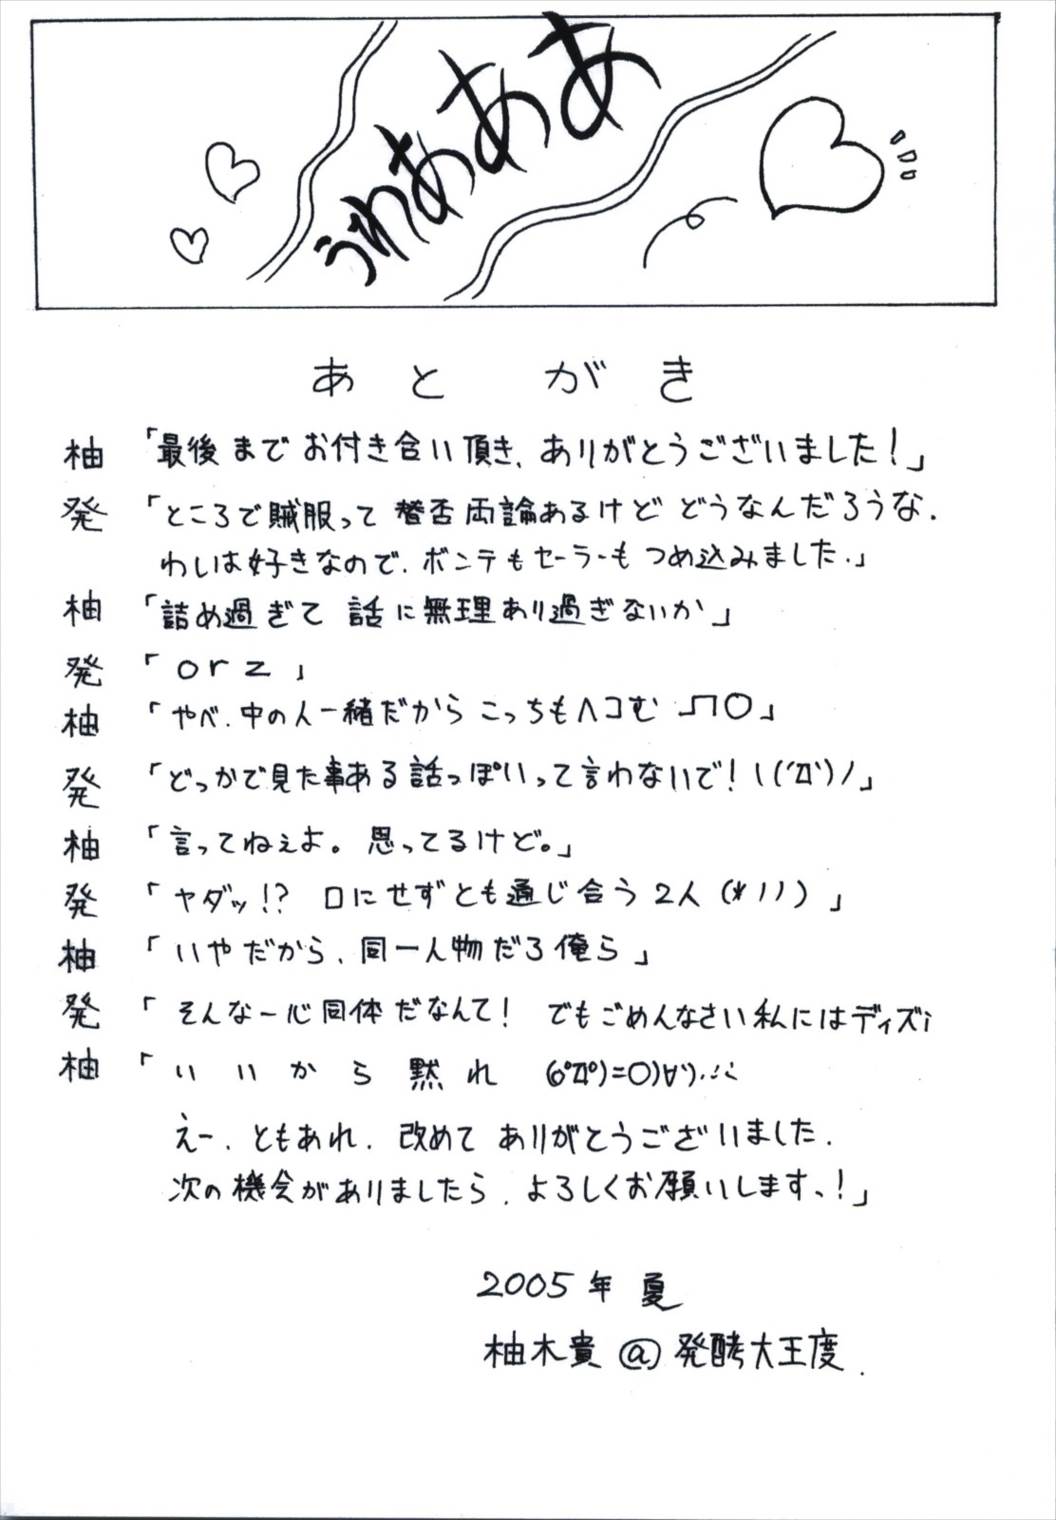 うわあああ
あとがき
柚「最後までお付き合い頂き、ありがとうございました！」
発「ところで賊服って賛否両論あるけど どうなんだろうな.
わしは好きなので、ボンテもセーラーもつめ込みました.」
柚「詰め過ぎて 話に無理あり過ぎないか」
発「orz」
柚「やべ、中の人一緒だからこっちもヘコむ _| ̄|○」
発「どっかで見た事ある話っぽいって言わないで！ヽ(´Д`)ノ」
柚「言ってねぇよ。思ってるけど。」
発「ヤダッ!? 口にせずとも通じ合う2人 (*ノノ)」
柚「いやだから、同一人物だろ俺ら」
発「そんな一心同体だなんて！ でもごめんなさい私にはディズi
柚「いいから黙れ (6ﾟДﾟ)=O)∀`).∴
えー、ともあれ、改めてありがとうございました.
次の機会がありましたら、よろしくお願いしますっ！」
2005年 夏
柚木貴@発酵大王度.